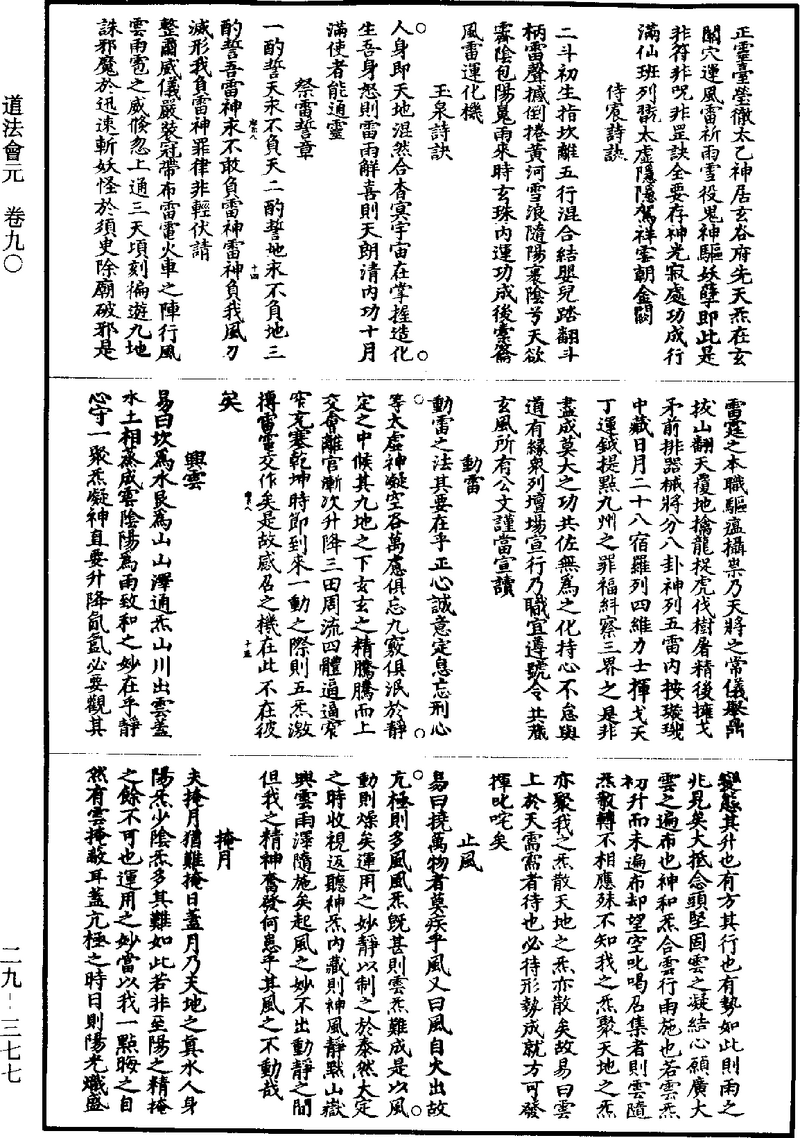 道法會元　卷九〇
二九-三七七
正靈臺瑩徹太乙神居玄谷府先天炁在玄
關穴運風雷祈雨雪役鬼神驅妖孽即此是
非符非呪非罡訣全要存神光寂處功成行
滿仙班列翳太虛隱隱駕祥雲朝金闕
侍宸詩訣
二斗初生指坎離五行混合結嬰兒踏翻斗
柄雷聲撼倒捲黃河雪浪隨陽裹陰兮天欲
霽陰包陽嵬雨來時玄珠內運功成後槖籥
風雷運化機
玉泉詩訣
人身即天地混然合杳冥宇宙在掌握造化
生吾身怒則雷雨解喜則天朗清內功十月
滿使者能通靈
祭雷誓章
一酌誓天永不負天二酌誓地永不負地三
酌誓吾雷神永不敢負雷神雷神負我風刀
滅形我負雷神罪律非輕伏請
整肅威儀嚴裝冠帶布雷電火車之陣行風
雲雨雹之威倏忽上通三天頃刻徧遊九地
誅邪魔於迅速斬妖怪於須臾除廟破邪是
雷霆之本職驅瘟攝祟乃天將之常儀舉鼎
拔山翻天覆地擒龍捉虎伐樹屠精後擁戈
矛前排器械將分八卦神列五雷內按璇璣
中藏日月二十八宿羅列四維力士揮戈天
丁運鉞提點九州之罪福糾察三界之是非
盡成莫大之功共佐無為之化持心不怠與
道有緣眾列壇場宣行乃職宜遵號令共藏
玄風所有公文謹當宣讀
動雷
動雷之法其要在乎正心誠意定息忘刑心
等太虛神凝空谷萬慮俱忘九竅俱泯於靜
定之中候其九地之下玄玄之精騰騰而上
交會離宮漸次升降三田周流四體逼逼窄
窄充塞乾坤時節到來一動之際則五炁激
摶雷電交作矣是故感召之機在此不在彼
矣
興雲
易曰坎為水艮為山山澤通炁山川出雲蓋
水土相蒸成雲陰陽為雨致和之妙在乎靜
心守一聚炁凝神直要升降氤氳必要觀其
變態其升也有方其行也有勢如此則雨之
兆見矣大抵念頭堅固雲之凝結心願廣大
雲之遍布也神和炁合雲行雨施也若雲炁
初升而未遍布却望空叱喝召集者則雲隨
炁散轉不相應殊不知我之炁聚天地之炁
亦聚我之炁散天地之炁亦散矣故易曰雲
上於天需需者待也必待形勢成就方可發
揮叱咤矣
止風
易曰撓萬物者莫疾乎風又曰風自火出故
亢極則多風風炁旣甚則雲炁難成是以風
動則燥矣運用之妙靜以制之於泰然大定
之時收視返聽神炁內藏則神風靜默山嶽
興雲雨澤隨施矣起風之妙不出動靜之間
但我之精神奮發何患乎其風之不動哉
掩月
夫掩月猶難掩日蓋月乃天地之真水人身
陽炁少陰炁多其難如此若非至陽之精掩
之餘不可也運用之妙當以我一點晦之自
然有雲掩蔽耳蓋亢極之時日則陽光熾盛